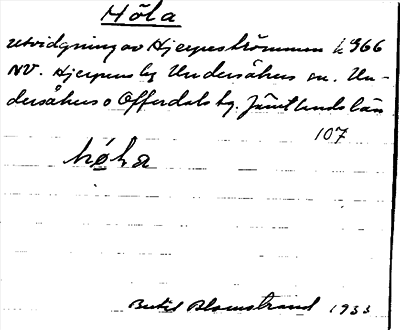 Höla
utvidgning av Hjerpeströmmen h 966
NV. Hjerpens by Undersåkers sn. Un-
dersåkers o Offerdals tg. Jämtlands län
107
hø̄la
Bertil Blomstrand 1933